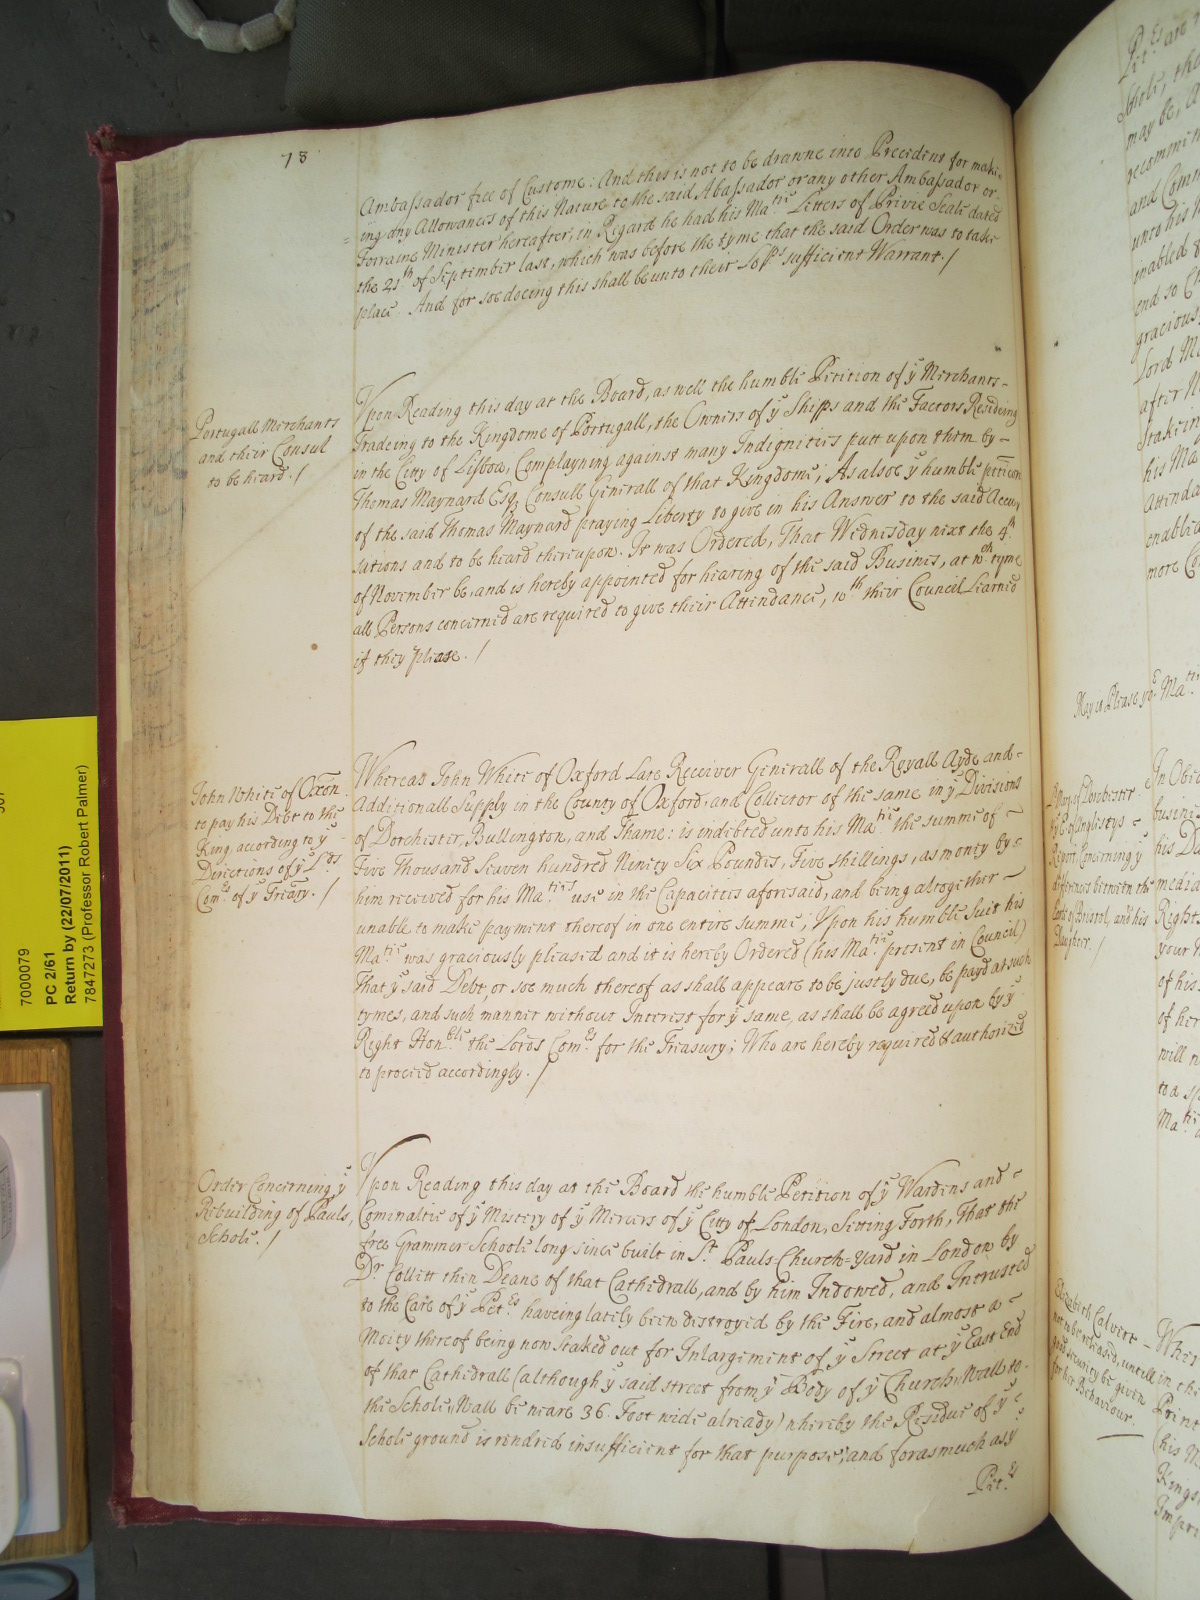 78
Ambassador free of Custome: And this is not to be drawne into Precedent for make-
ing any Allowances of this Nature to the said Abassador or any other Ambassador or
Forraine Minister hereafter, in Regard he had his Ma:tie Letters of Privie Seale dated
the 21th of September last, which was before the tyme that the said Order was to take
place. And for soe doeing this shall be unto their Lopps sufficient Warrant. /
Portugall Merchants
and their Consul
to be heard. /
Vpon Reading this day at the Board, as well the humble Petition of ye Merchants
Tradeing to the Kingdome of Portugall, the Owners of ye Shipps and the Factors Resideing
in the Citty of Lisbow, Complayning against many Indignities putt upon them by
Thomas Maynard Esq, Consull Generall of that Kingdome; As alsoe ye humble peticon
of the said Thomas Maynard praying Liberty to give in his Answer to the said Accu-
sations and to be heard thereupon. It was Ordered, That Wednesday next the 4th
of November be, and is hereby appointed for hearing of the said Busines, at wch tyme
all Persons concerned are required to give their Attendance, wth their Council Learned
if they please. /
John White of Oxon
to pay his Debt to the
King, according to ye
Directions of ye Lds
Comrs of ye Treary. /
Whereas John White of Oxford Late Receiver Generall of the Royall Ayde and
Additionall Supply in the County of Oxford, and Collector of the same in ye Divisions
of Dorchester, Bullington, and Thame: is indebted unto his Ma:tie the summe of
Five Thousand Seaven hundred Ninety Six Poundes, Five shillings, as money by
him received for his Ma:ties use in the Capacities aforesaid, and being altogether
unable to make payment thereof in one entire summe; Vpon his humble Suit his
Ma:tie was graciously pleased and it is hereby Ordered (his Ma:tie present in Council)
That ye said Debt, or soe much thereof as shall appeare to be justly due, be payd at such
tymes, and such manner without Interest for ye same, as shall be agreed upon by ye
Right Honble the Lords Comrs for the Treasury; Who are hereby required & authorized
to proceed accordingly. /
Order Concerning ye
Rebuilding of Pauls
Schole. /
Vpon Reading this day at the Board the humble Petition of ye Wardens and
Cominaltie of ye Mistery of ye Mercers of ye Citty of London, Setting Forth, That the
free Grammer Schoole long since built in St Pauls Church=Yard in London by
Dr Collitt then Deane of that Cathedrall, and by him Indowed, and Intrusted
to the Care of ye Petrs haveing lately been distroyed by the Fire, and almost a
Moity thereof being now staked out for Inlargement of ye Street at ye East End
of that Cathedrall (although ye said street from ye Body of ye Church Wall to
the Schole Wall be neare 36. Foot wide already) whereby the Residue of ye
Schole ground is rendred insufficient for that purpose; and forasmuch as ye
Petrs
may be,
and Comm
unto his
inabled
end so
gracious
Lord
after
his Ma
Attenda
enabled
more
May it Please yor Ma:tie
In Obed
busine
his
media
Right
your
of his
of her
will
to a
Ma:tie
differences betwith the
Earle of Bristol, and his
Daugher. /
Elizabeth Calvert
not to be released, untill
good security be given
for her Behaviour.
in the
(his
Kings
7000079
PC 2/61
Return by (22/07/2011)
7847273 (Professor Robert Palmer)